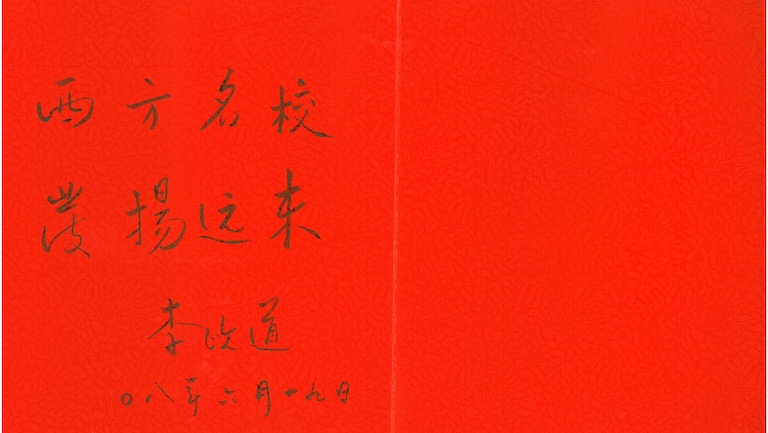 西方名校
发揚远来
李政道
〇八年六月十九日